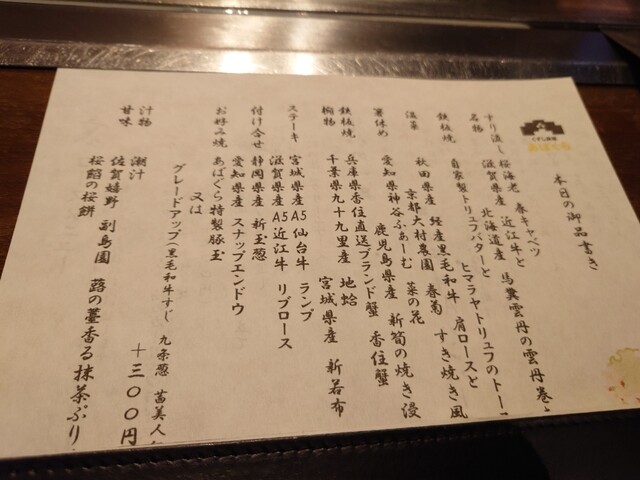 あばぐら
本日の御品書き
すり流し 桜海老 春キャベツ
滋賀県産 近江牛と 馬糞雲丹の雲丹巻き
名物 北海道産
自家製トリュフバターと ヒマラヤトリュフのトー
鉄板焼 秋田県産 経産黒毛和牛 肩ロースと
京都大村農園 春菊 すき焼き風
温菜 愛知県神谷ふぁーむ 菜の花
鹿児島県産 新筍の焼き浸
箸休め 兵庫県香住直送ブランド蟹 香住蟹
鉄板焼 千葉県九十九里産 地蛤
椀物 宮城県産 新若布
ステーキ 宮城県産A5仙台牛 ランプ
滋賀県産A5近江牛 リブロース
付け合せ 静岡県産 新玉葱
愛知県産 スナップエンドウ
お好み焼 あばぐら特製豚玉
又は
グレードアップ(黒毛和牛すじ 九条葱 茜美人
+三〇〇円
汁物 潮汁
甘味 佐賀嬉野 副島園 蕗の薹香る抹茶ぷり
桜餡の桜餅